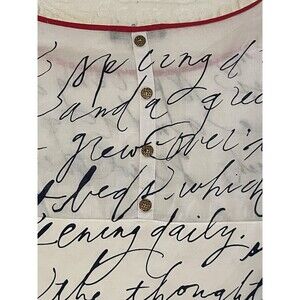 spring d
and a gree
grew over
beds, which
ening daily.
the thought